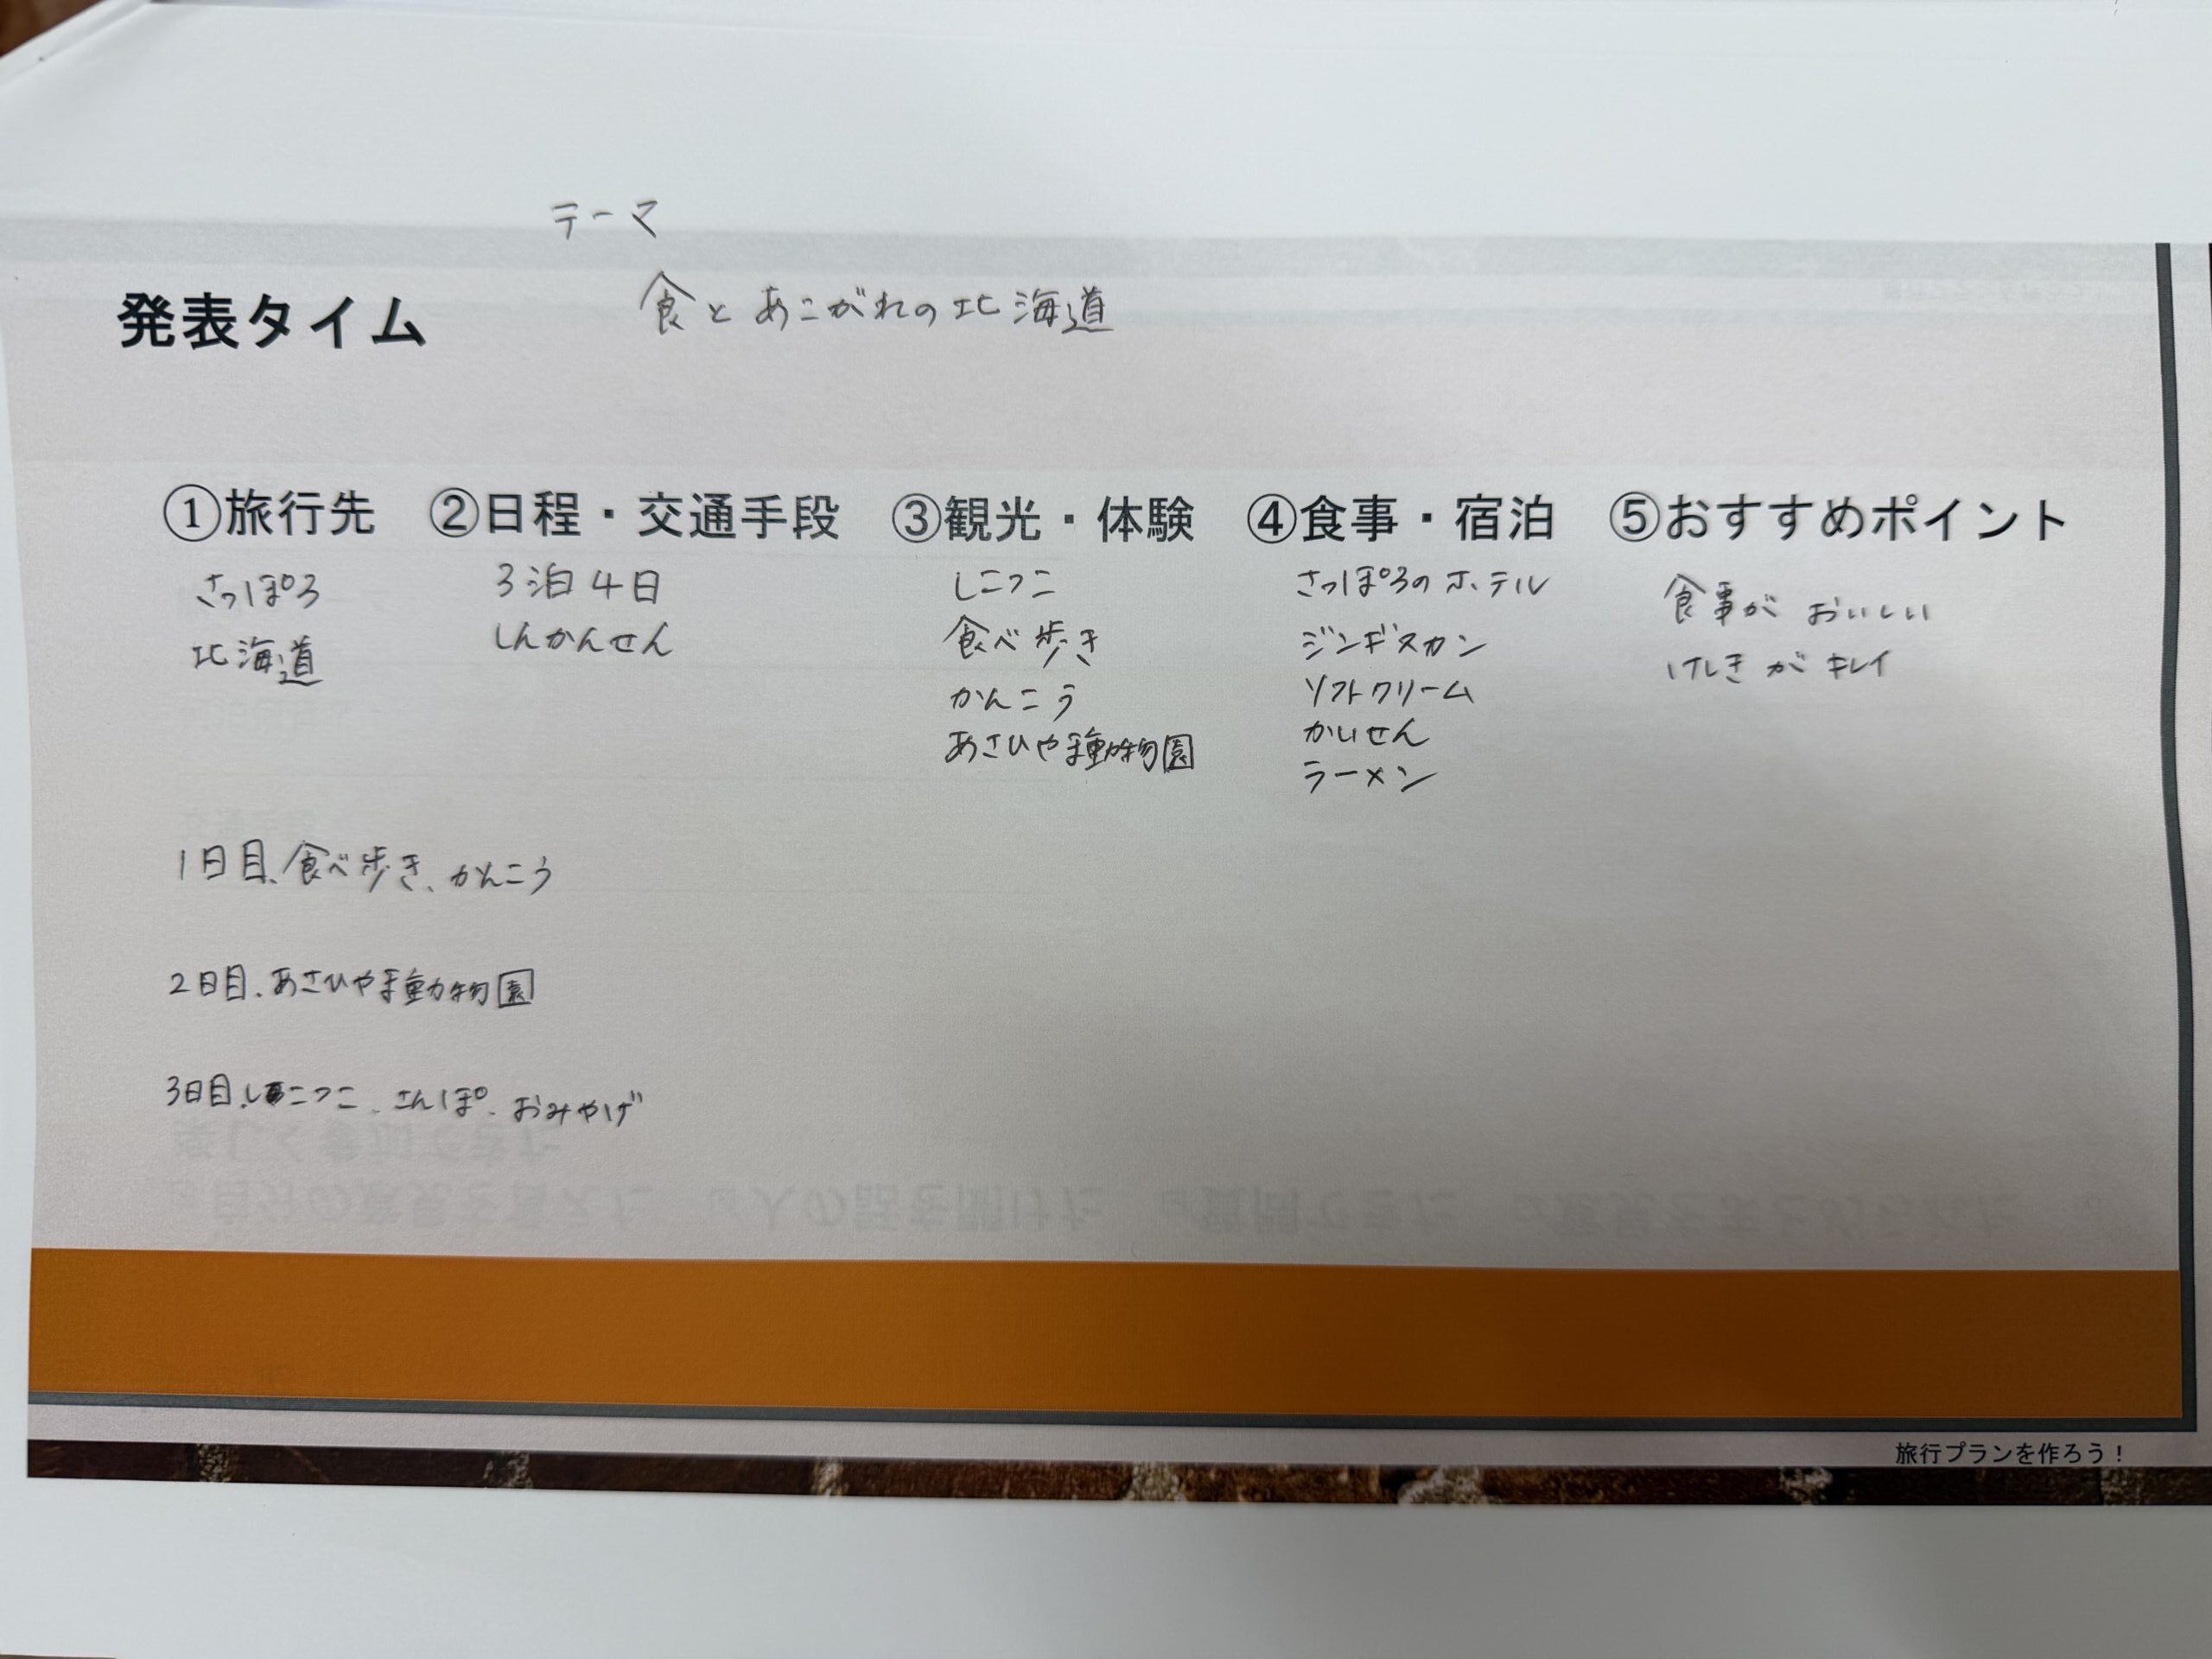 テーマ
食とあこがれの北海道
発表タイム
①旅行先 ②日程・交通手段 ③観光・体験 ④食事・宿泊 ⑤おすすめポイント
さっぽろ
北海道
3泊4日
しんかんせん
しこつこ
食べ歩き
かんこう
あさひやま動物園
さっぽろのホテル
ジンギスカン
ソフトクリーム
かいせん
ラーメン
食事が おいしい
けしきが キレイ
1日目、食べ歩き、かんこう
2日目、あさひやま動物園
3日目、しこつこ、さんぽ、おみやげ
旅行プランを作ろう！